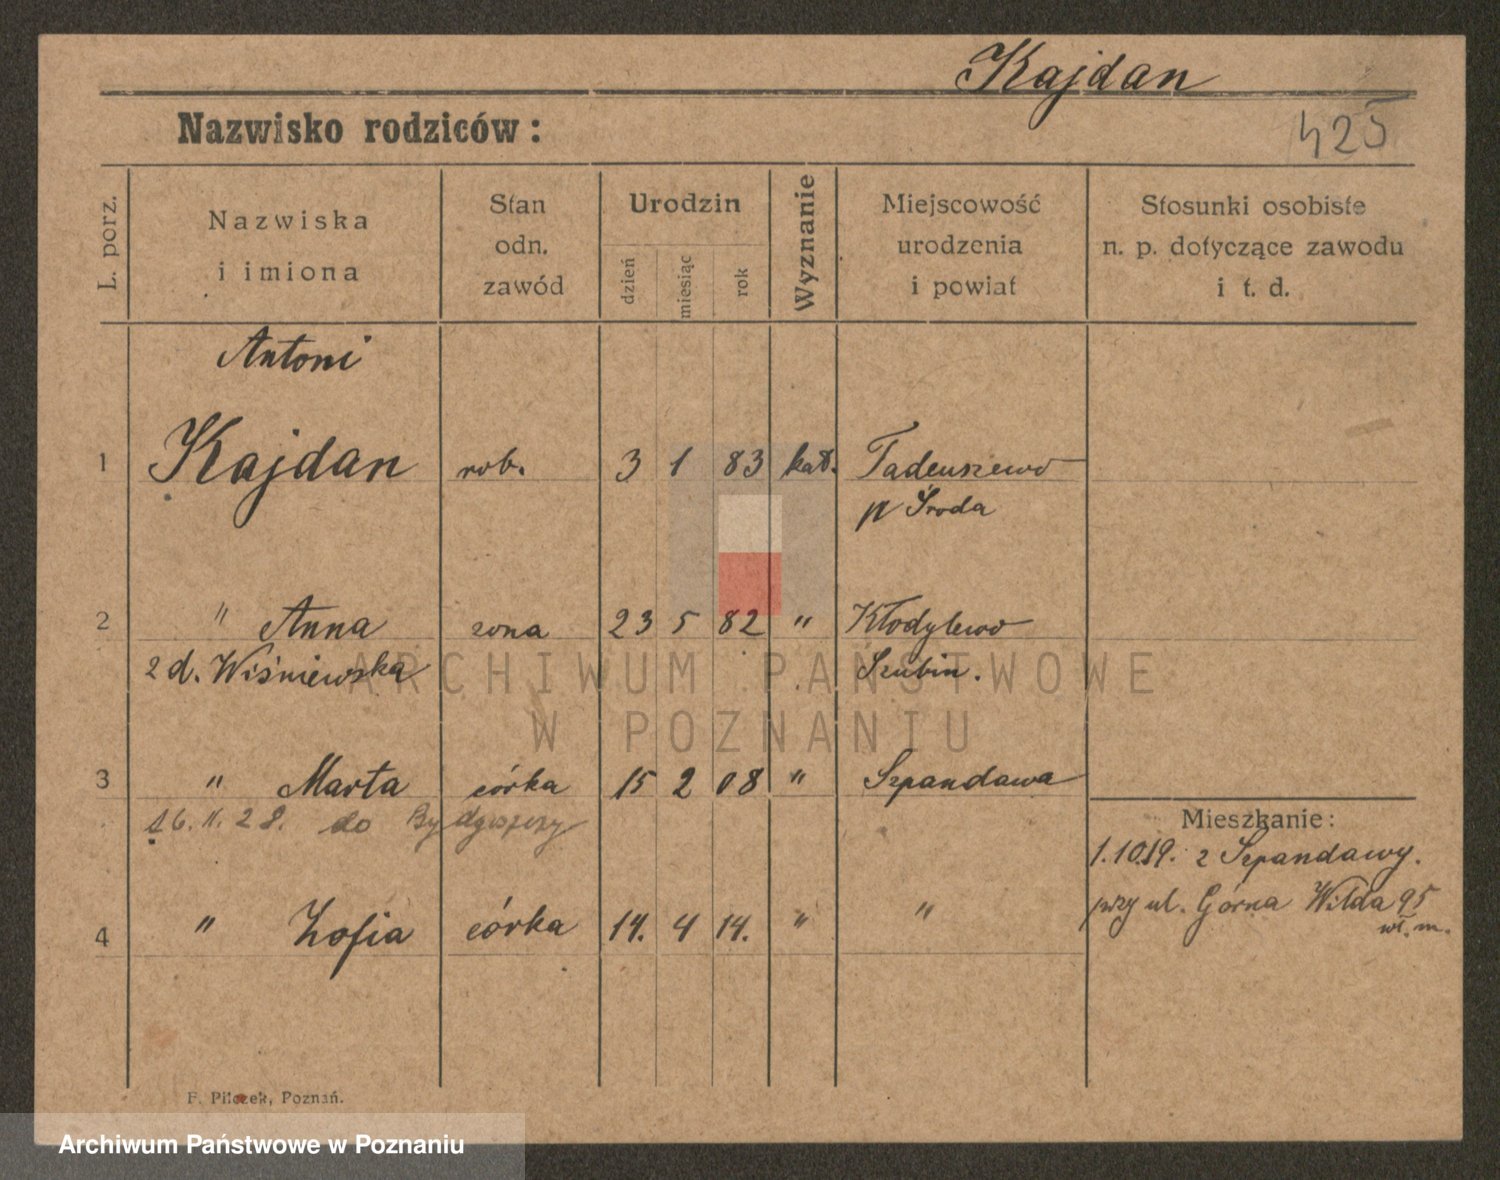 Kajdan
Nazwisko rodziców:
425
L. porz.
Nazwiska
i imiona
Stan
odn.
zawód
Urodzin
dzień
miesiąc
rok
Wyznanie
Miejscowość
urodzenia
i powiat
Stosunki osobiste
n. p. dotyczące zawodu
i t. d.
Antoni
1 Kajdan rob. 3 1 83 kat. Tadeuszewo
p Środa
2 " Anna żona 23 5 82 " Kłodylewo
z d. Wiśniewska Szubin.
3 " Marta córka 15 2 08 " Szpandawa
16. II. 28. do Bydgoszczy
Mieszkanie:
1.10.19. z Szpandawy.
przy ul. Górna Wilda 95
wł. m.
4 " Zofia córka 14. 4 14. " "
F. Pilczek, Poznań.
ARCHIWUM PAŃSTWOWE
W POZNANIU
Archiwum Państwowe w Poznaniu